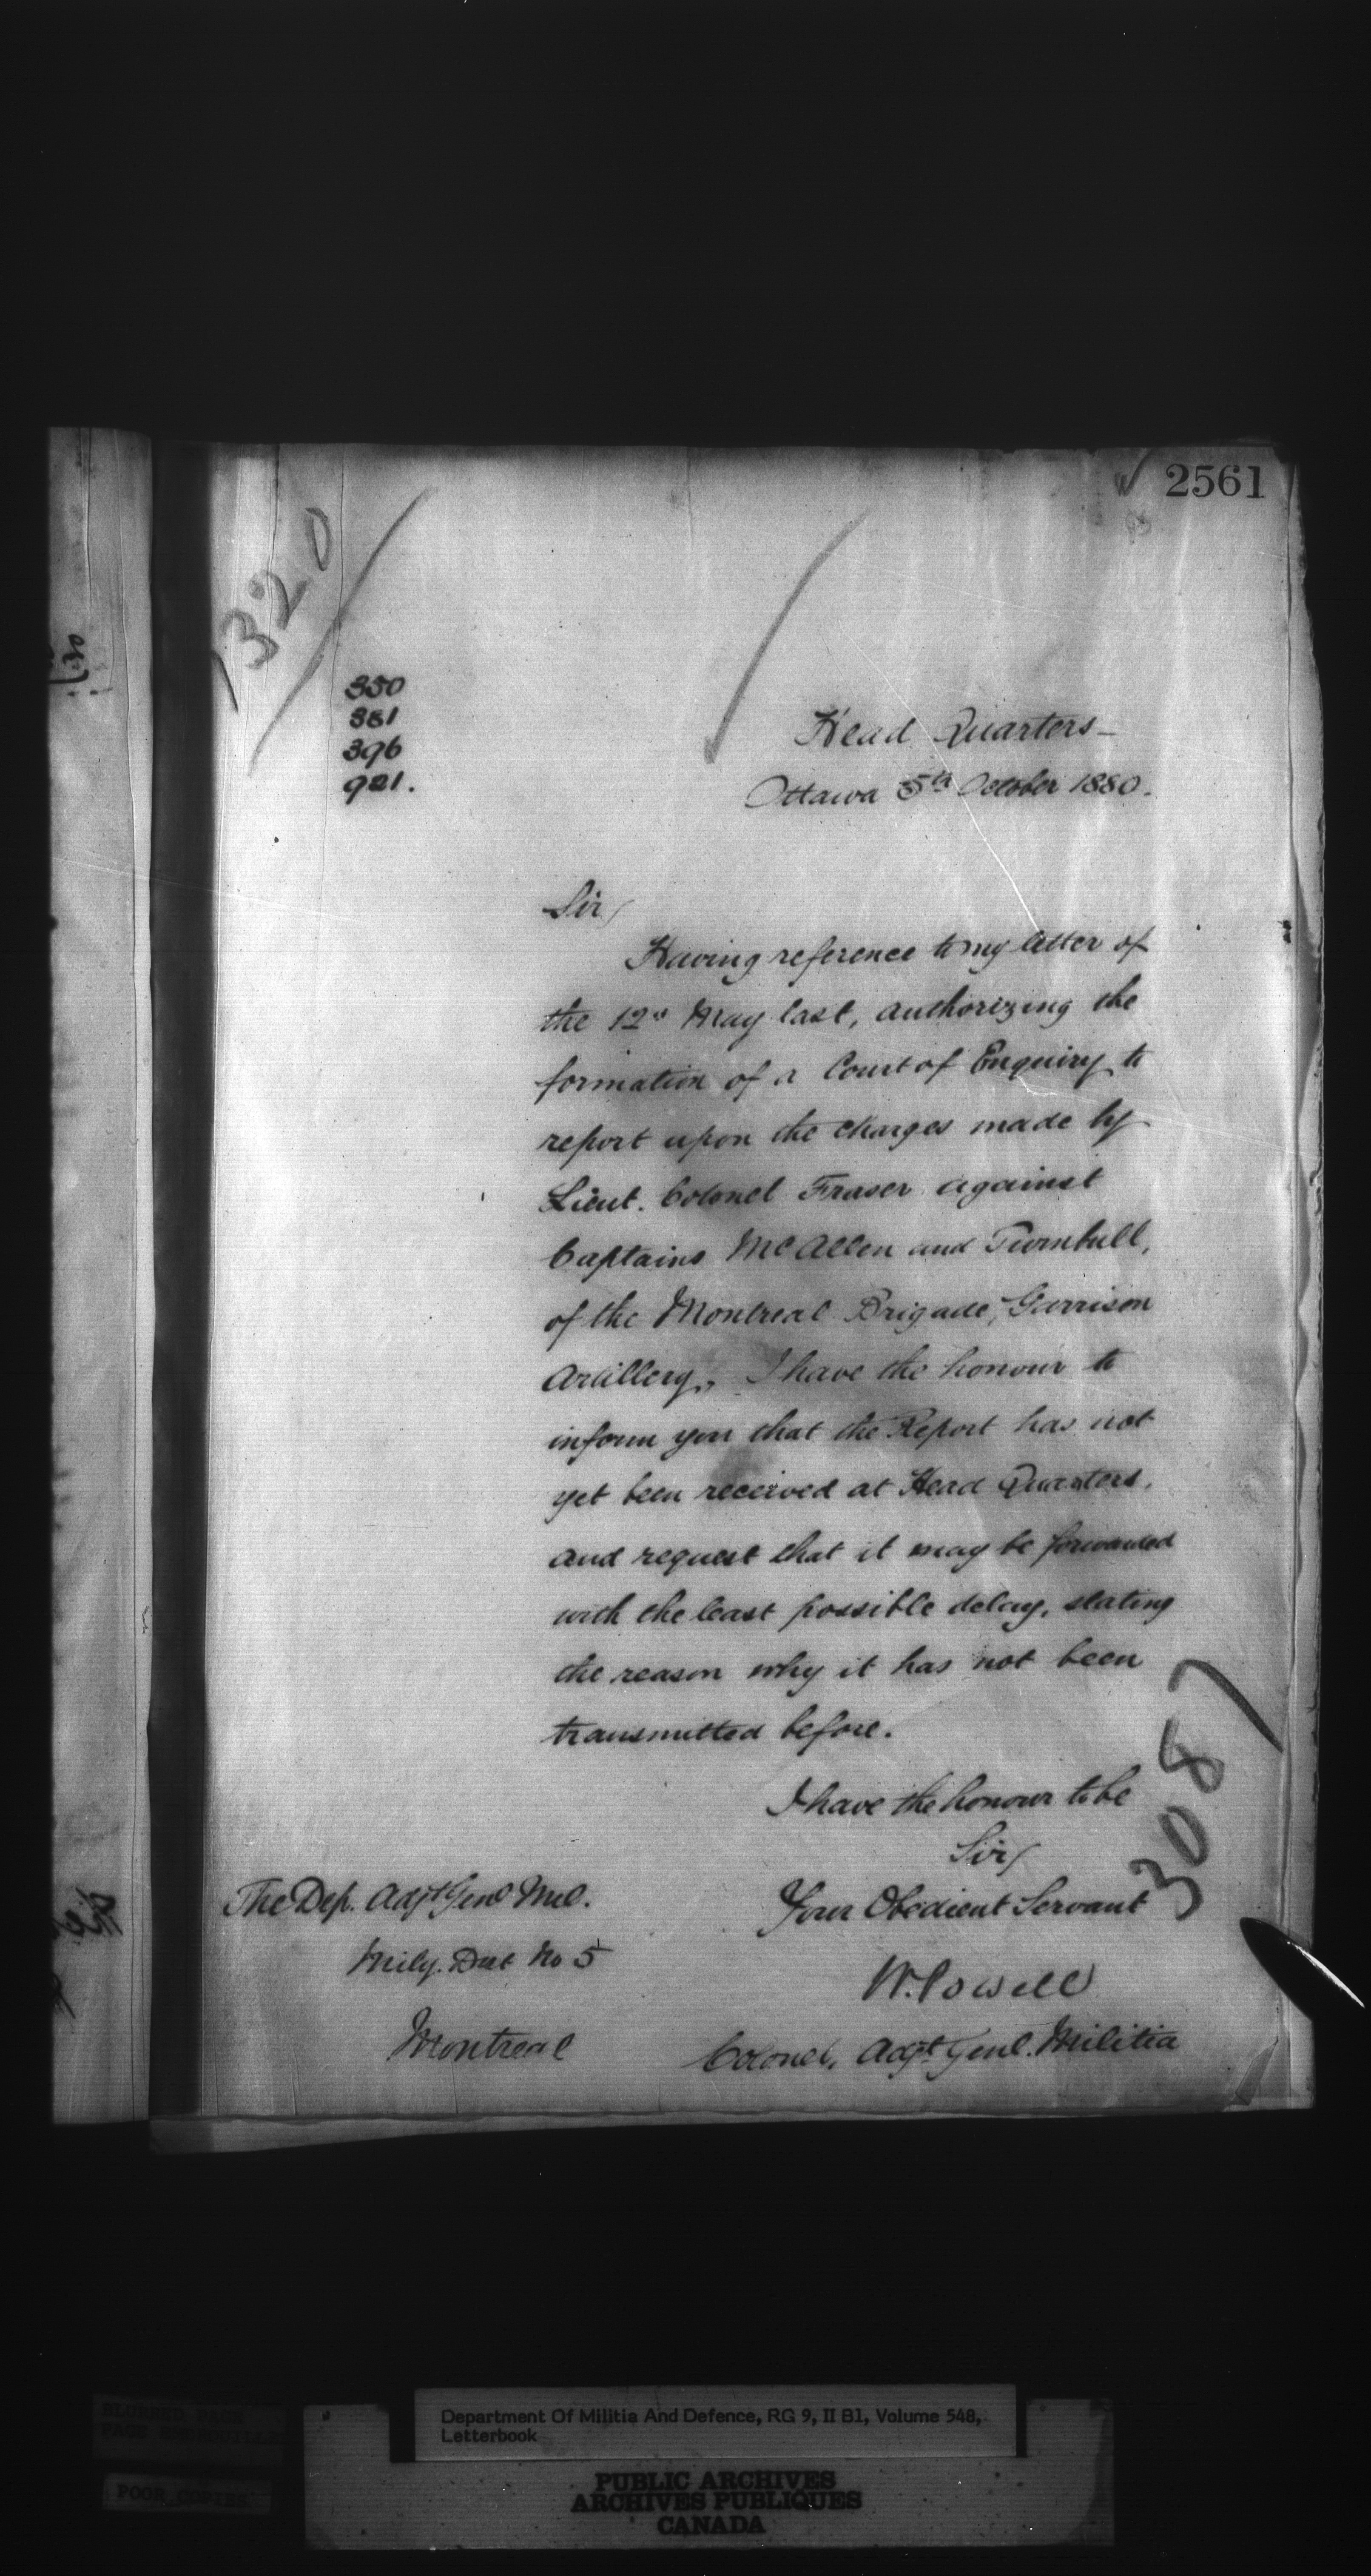 2561
1320
350
381
396
921.
Head Quarters-
Ottawa 5th October 1880.
Sir,
Having reference to my letter of
the 12th May last, authorizing the
formation of a Court of Enquiry to
report upon the charges made by
Lieut. Colonel Fraser against
Captains McAllen and Turnbull,
of the Montreal Brigade, Garrison
Artillery, I have the honour to
inform you that the Report has not
yet been received at Head Quarters,
and request that it may be forwarded
with the least possible delay, stating
the reason why it has not been
transmitted before.
I have the honour to be
Sir,
Your Obedient Servant
W. Powell
Colonel, Adjt Genl. Militia
The Dep. Adjt Genl Mil.
Mily. Dist No 5
Montreal
3087
Department Of Militia And Defence, RG 9, II B1, Volume 548,
Letterbook
PUBLIC ARCHIVES
ARCHIVES PUBLIQUES
CANADA
POOR COPIES